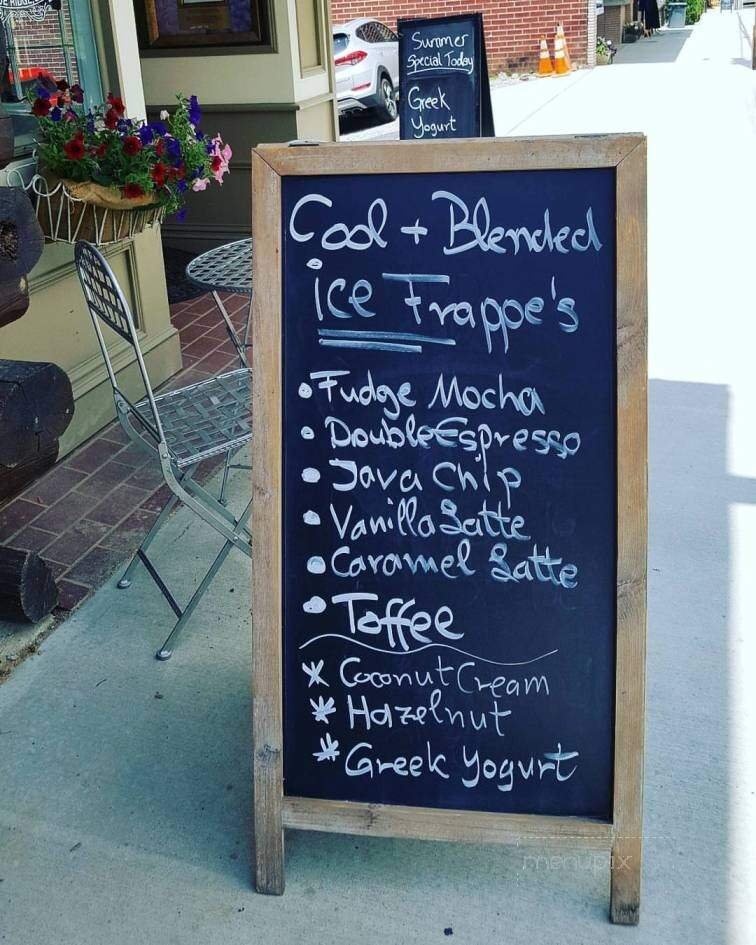 Summer
Special Today
Greek
Yogurt
Cool + Blended
ice Frappe's
• Fudge Mocha
• Double Espresso
• Java Chip
• Vanilla Latte
• Caramel Latte
• Toffee
* Coconut Cream
* Hazelnut
* Greek Yogurt
menupix